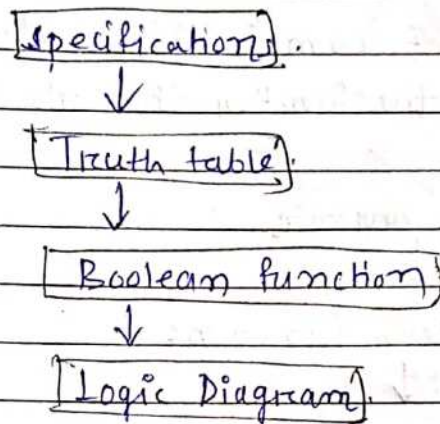 Specifications.
Truth table.
Boolean function
Logic Diagram.